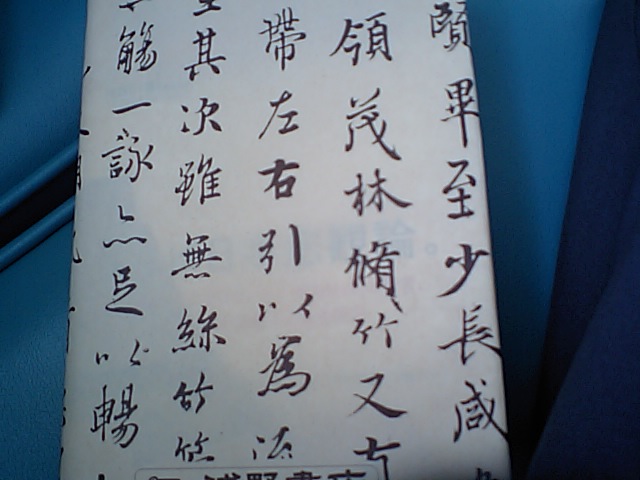 賢畢至少長咸
領茂林脩竹又有
帶左右引以為流
其次雖無絲竹管
觴一詠亦足以暢
浅野書店